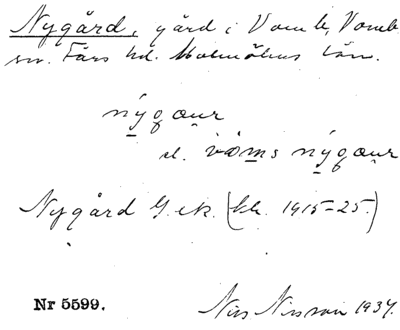 Nygård, gård i Vomb, Vomb
sn. Färs hd. Malmöhus län.
nýgœur
el. vöms nýgœur
Nygård G. ek. (bl. 1915-25.)
Nr 5599.
Nils Nilsson 1934.